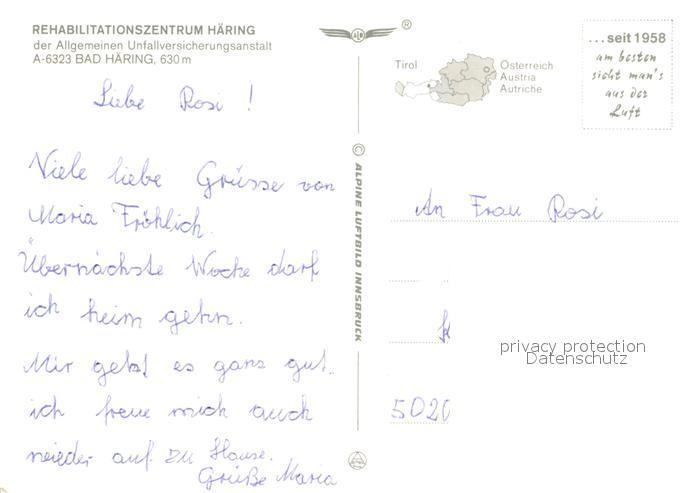 REHABILITATIONSZENTRUM HÄRING
der Allgemeinen Unfallversicherungsanstalt
A-6323 BAD HÄRING, 630 m
Liebe Rosi !
Viele liebe Grüsse von
Maria Fröhlich.
Übernächste Woche darf
ich heim gehn.
Mir geht es ganz gut.
ich freue mich auch
wieder auf zu Hause.
Grüße Maria
©
ALPINE LUFTBILD INNSBRUCK
®
Tirol
Österreich
Austria
Autriche
...seit 1958
am besten
sieht man's
aus der
Luft
An Frau Rosi
5020
privacy protection
Datenschutz